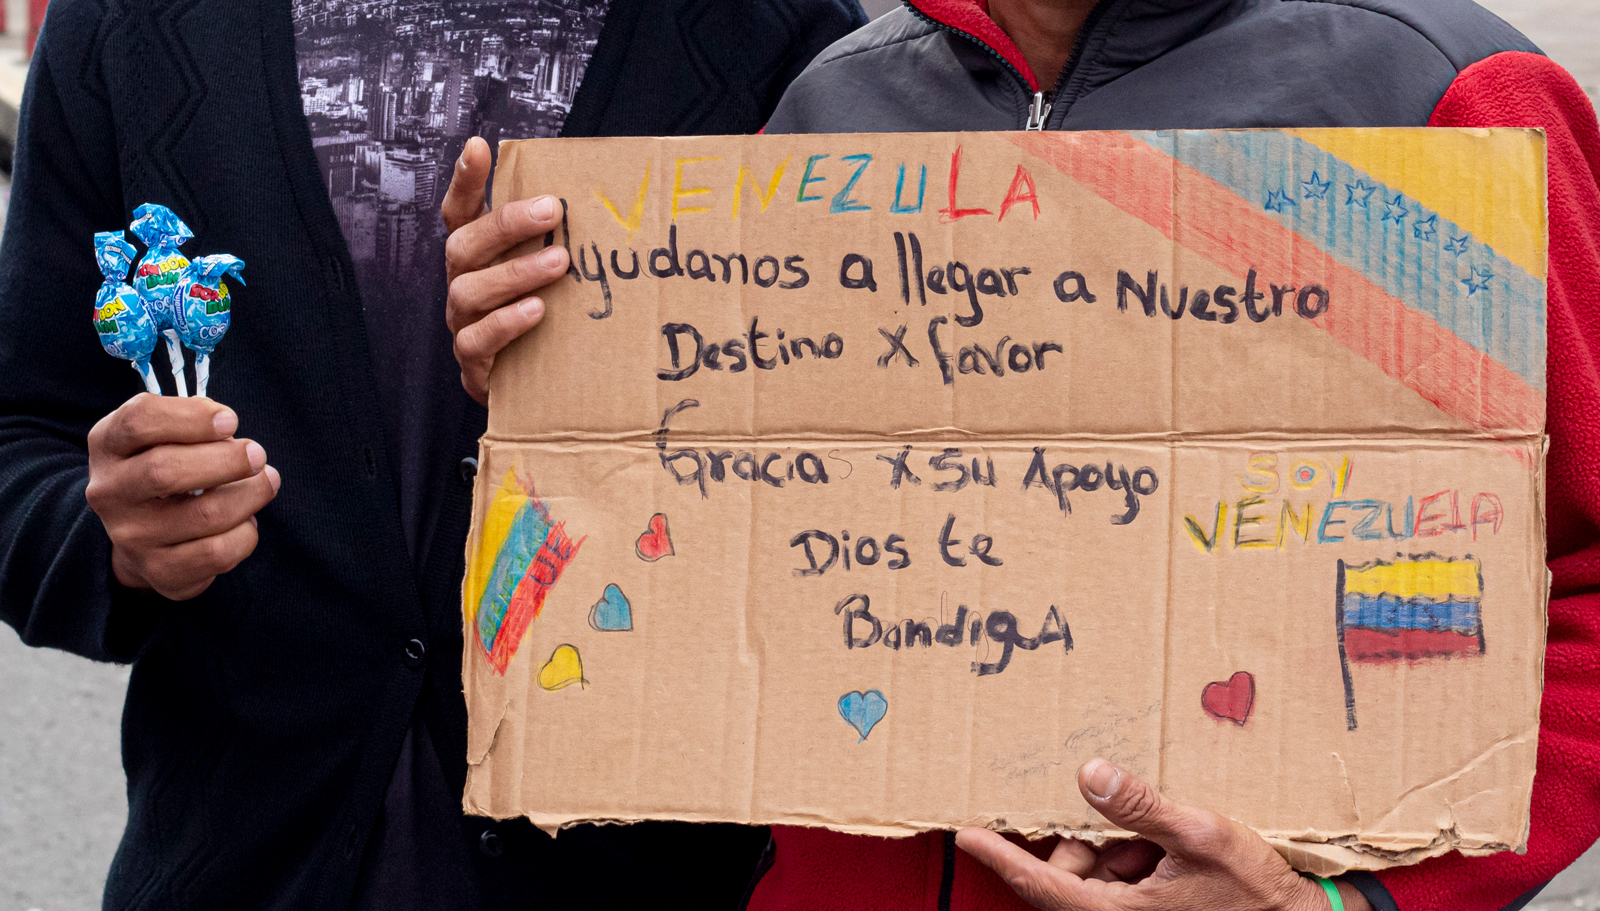 VENEZULA
Ayudanos a llegar a Nuestro
Destino X favor
Gracias X su Apoyo
Dios te
BandigA
SOY
VENEZUELA
BON BON
BUM